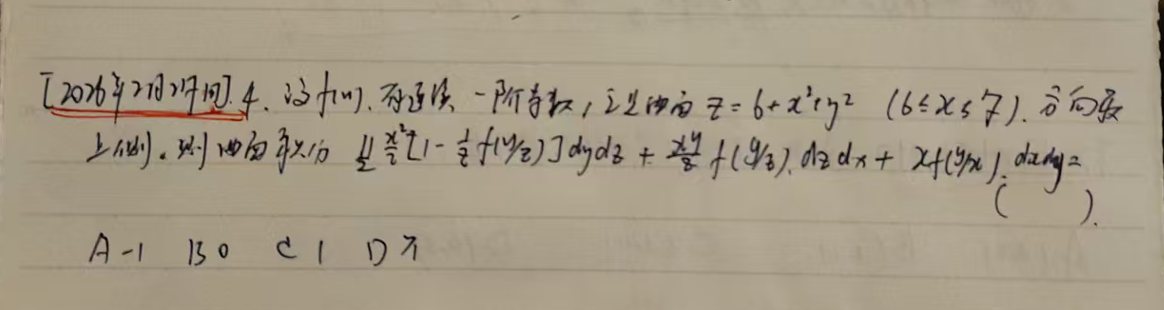 [2026年2月21日问]. 4. 设f(u). 有连续一阶导数, Σ是曲面 z = 6 + x²+y² (6≤x≤7). 方向取
上侧. 则曲面积分 ∬_Σ x²/z [1 - 1/z f(y/z)] dydz + xy/z f(y/z). dzdx + xf(y/x). dxdy =
( ).
A -1 B 0 C 1 D π